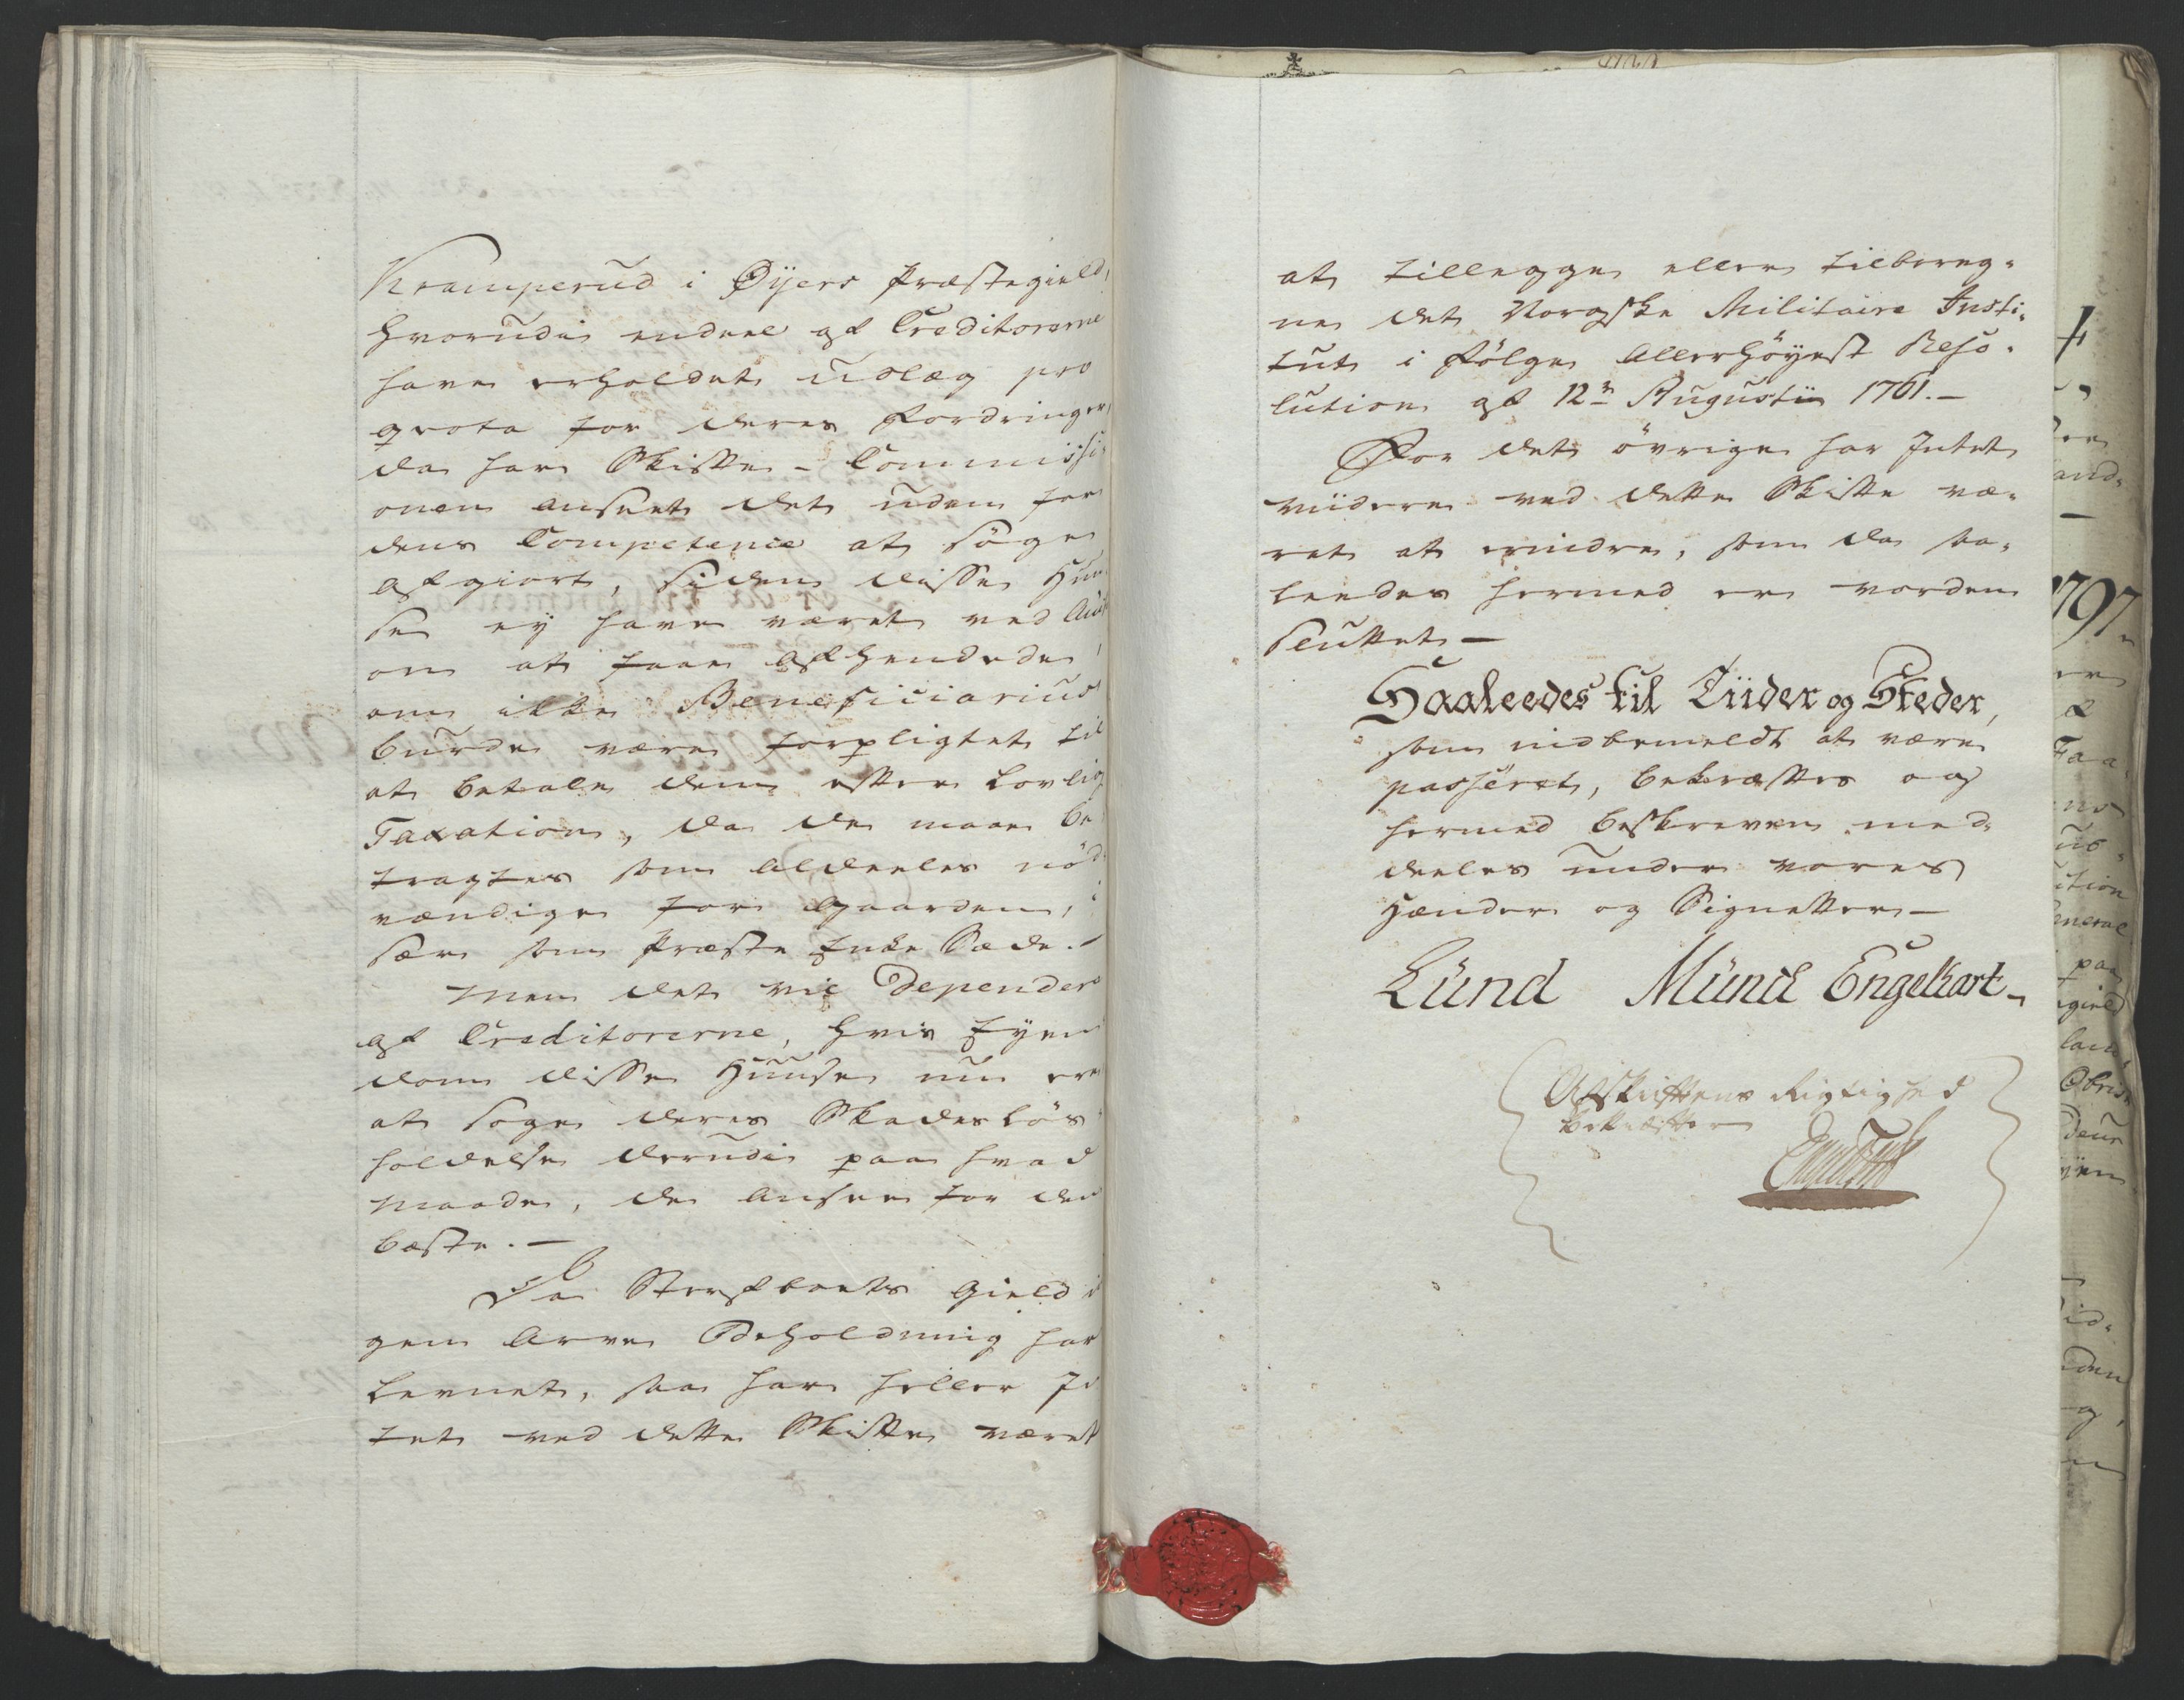 Kramperud i Øyers Præstegield,
hvorudi endeel af Creditorerne
have erholdet udlæg pro
qvota for deres Fordringer,
da har Skifte-Commissi-
onen anseet det uden for
dens Competence at søge
afgiort, siden disse Huu-
se ey have været ved
om at faae afhændede,
om ikke Beneficiarius
burde være forpligtet til
at betale dem efter Lovlig
Taxation, da de maae be-
tragtes som aldeeles nød-
vændige for Gaarden, i
sær som Præste Enke Sæde.-
Men det vil Dependere
af Creditorerne, hvis Eyen-
dom disse Huuse nu ere
at søge deres Skadesløs-
holdelse derudi paa hvad
Maade, de ansee for den
beste.-
Da Sterfboets Gield i
gen Arve Beholdning har
levnet, saa har heller In
tet ved dette Skifte været
at tillegge eller tilbereg-
ne det Norgske Militaire Insti-
tut i Følge Allerhöyest Reso-
lution af 12te Augustii 1761.-
For det övrige har Intet
viidere ved dette Skifte væ-
ret at erindre, som da saa-
leedes hermed er vorden
sluttet-
Saaleedes til Tiider og Steder,
som melbemeldt at være
passeret, bekræftes og
hermed beskreven med-
deeles under vores
Hænder og Signetter-
Lünd Münck Engelhart-
Afskriftens Rigtighed
bekræfter
1797